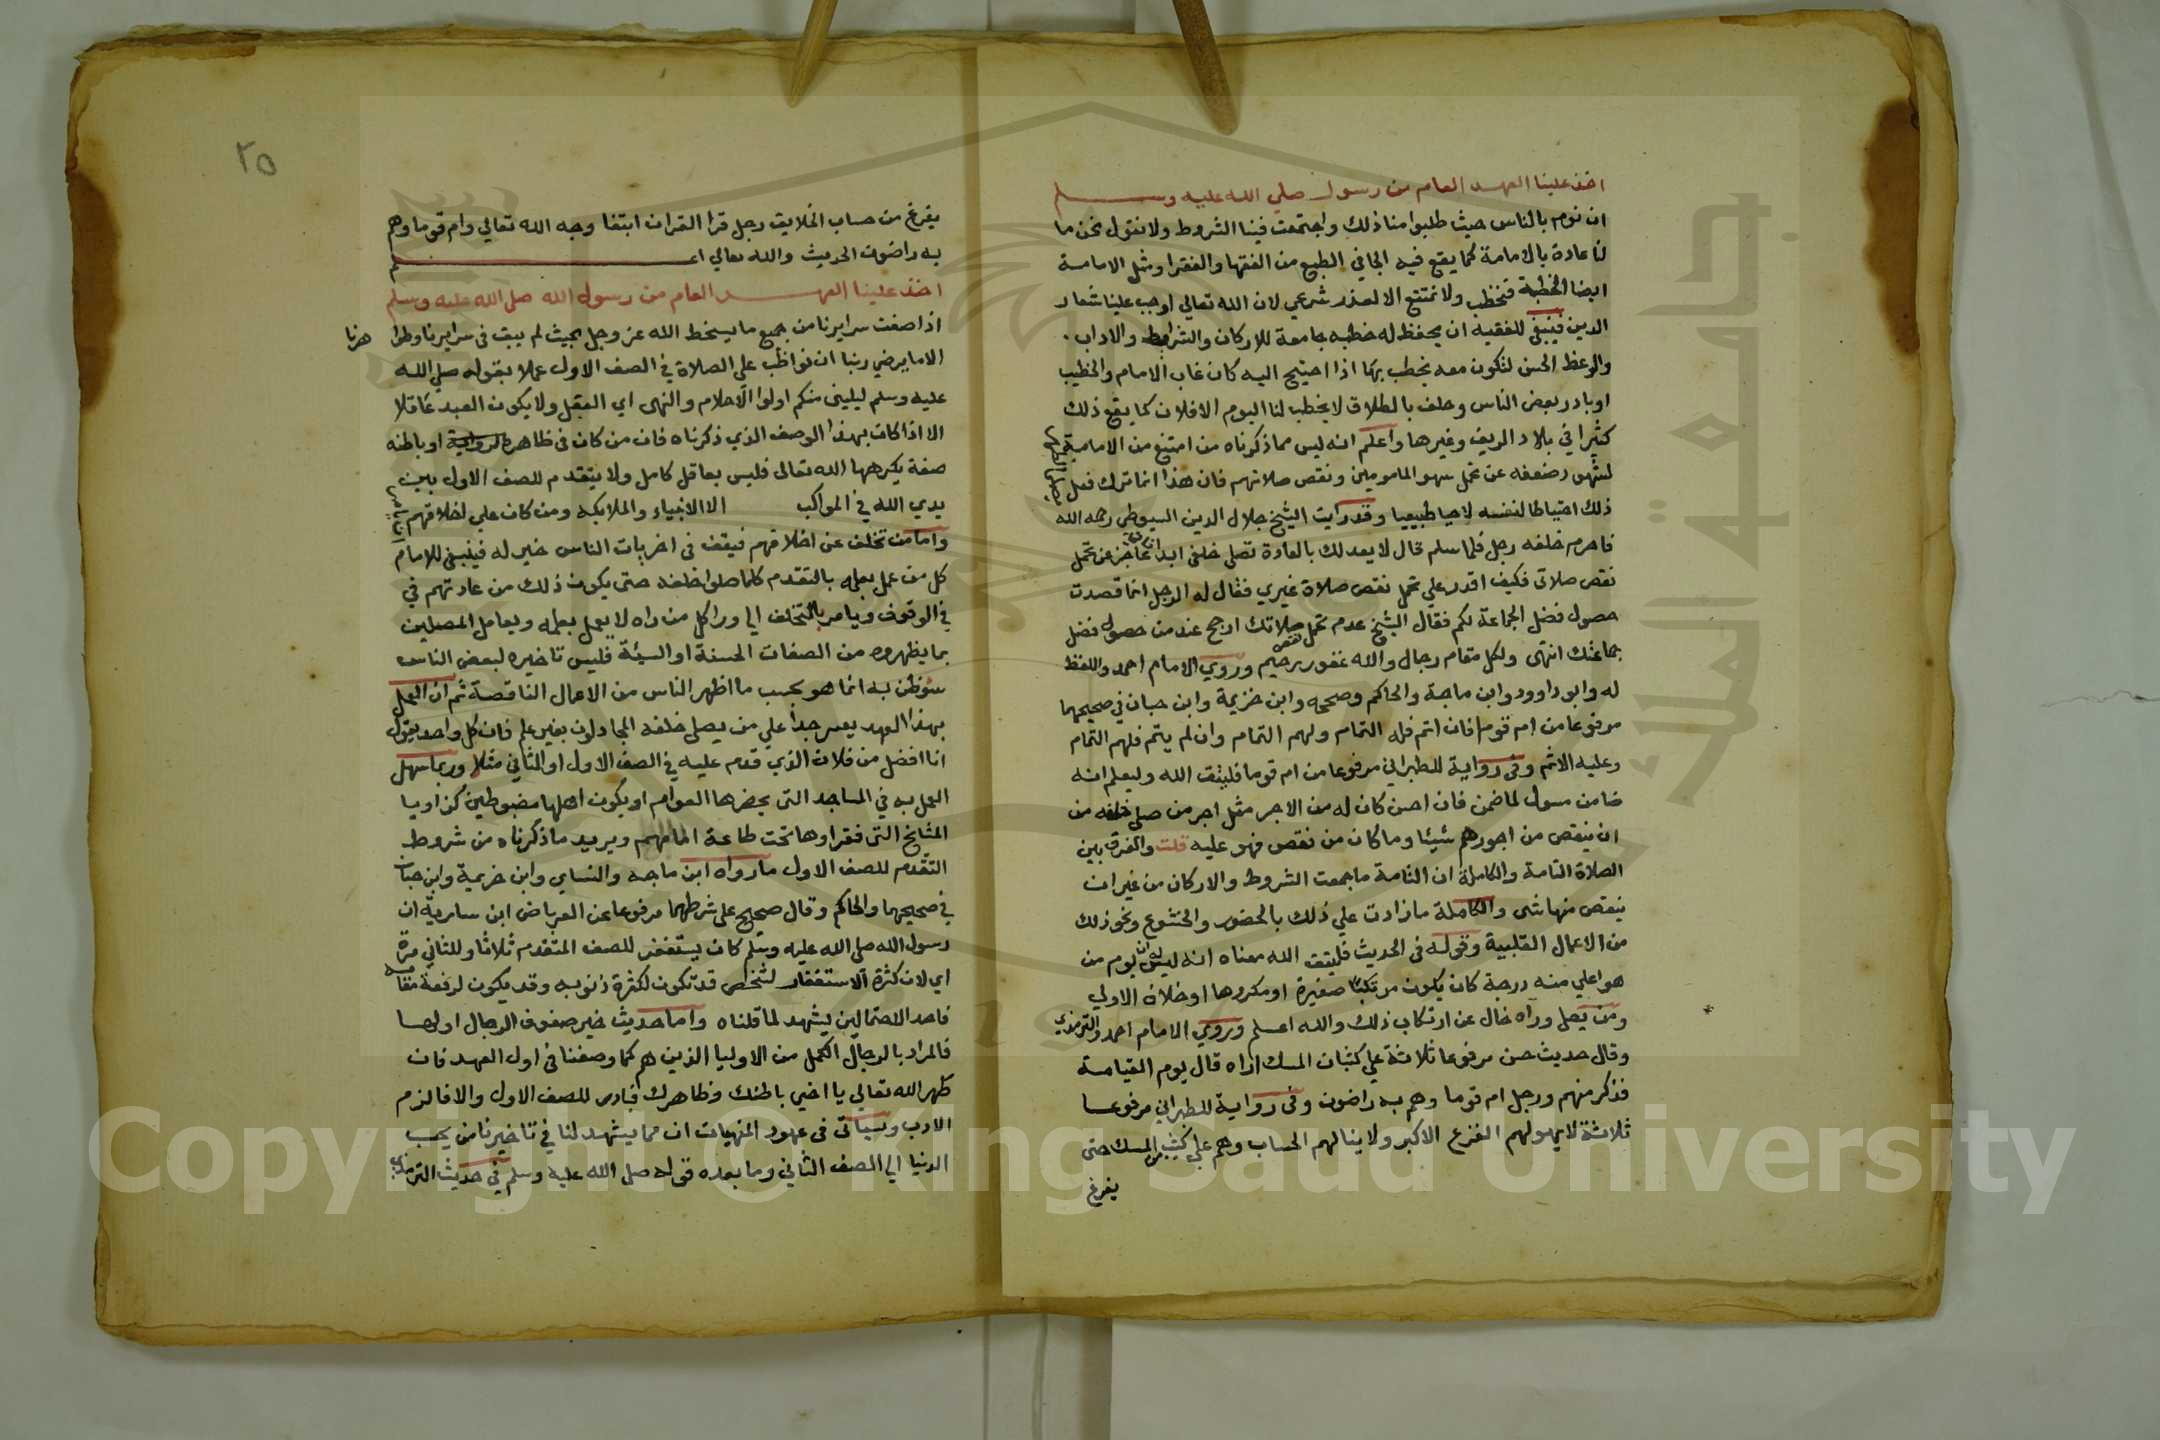 اخذ علينا العهد العام من رسول صلي الله عليه وسلم
ان نوم بالناس حيث طلبوا منا ذلك واجتمعت فينا الشروط ولا نقول نحن ما
لنا عادة بالامامة كما يقع فيه الجافي الطبع من الفقها والفقرا ومثل الامامة
ايضا الخطبة فنخطب ولا نمتنع الا لعذر شرعي لان الله تعالي اوجب علينا شعار
الدين فينبغي للفقيه ان يحفظ له خطبه جامعة للاركان والشرايط والاداب .
والوعظ الحسن لتكون معه يخطب بها اذا احتيج اليه كان غاب الامام والخطيب
او بادر بعض الناس وحلف بالطلاق لا يخطب لنا اليوم الا فلان كما يقع ذلك
كثيرا في بلاد الريف وغيرها واعلم انه ليس مما ذكرناه من امتنع من الامامة
لشهود ضعفه عن تحمل سهو المامومين ونقص صلاتهم فان هذا انما ترك فعل
ذلك احتياطا لنفسه لا حيا طبيعيا وقد رايت الشيخ جلال الدين السيوطي رحمه الله
فاحرم خلفه رجل فلما سلم قال لا يعد لك بالعادة تصلي خلفي ابدا انا عاجز عن تحمل
نقص صلاتي فكيف اقدر علي تحمل نقص صلاة غيري فقال له الرجل انما قصدت
حصول فضل الجماعة لكم فقال الشيخ عدم تحمل نقص صلاتك ارجح عند من حصول فضل
جماعتك انتهى ولكل مقام رجال والله غفور رحيم وروي الامام احمد واللفظ
له وابو داوود وابن ماجة والحاكم وصححه وابن خزيمة وابن حبان في صحيحهما
مرفوعا من ام قوما فان اتم فله التمام ولهم التمام وان لم يتم فلهم التمام
وعليه الاثم وفي رواية للطبراني مرفوعا من ام قوما فليتق الله وليعلم انه
ضامن مسول لما ضمن فان احسن كان له من الاجر مثل اجر من صلي خلفه من
ان ينقص من اجورهم شيئا وما كان من نقص فهو عليه قلت والفرق بين
الصلاة التامة والكاملة ان التامة ما جمعت الشروط والاركان من غير ان
ينقص منها شي والكاملة ما زادت علي ذلك بالحضور والخشوع ونحو ذلك
من الاعمال القلبية وقوله في الحديث فليتق الله معناه انه ليس له ان يوم من
هو اعلي منه درجة كان يكون مرتكبا صغيرة او مكروها او خلاف الاولي
ومن يصل وراه خال عن ارتكاب ذلك والله اعلم وروي الامام احمد والترمذي
وقال حديث حسن مرفوعا ثلاثة علي كثبان المسك اراه قال يوم القيامة
فذكر منهم ورجل ام قوما وهم به راضون وفي رواية للطبراني مرفوعا
ثلاثة لا يهولهم الفزع الاكبر ولا ينالهم الحساب وهم علي كثيب من المسك حتى
يفرغ
٢٥
يفرغ من حساب الخلايق رجل قرا القران ابتغا وجه الله تعالي وام قوما وهم
به راضون الحديث والله تعالي اعلم
اخذ علينا العهد العام من رسول الله صلي الله عليه وسلم
اذا صفت سرايرنا من جميع ما يسخط الله عز وجل بحيث لم يبق في سرايرنا وظواهرنا
الا ما يرضي ربنا ان نواظب علي الصلاة في الصف الاول عملا بقوله صلي الله
عليه وسلم ليليني منكم اولوا الاحلام والنهى اي العقل ولا يكون العبد عاقلا
الا اذا كان بهذا الوصف الذي ذكرناه فان من كان في ظاهره او باطنه
صفة يكرهها الله تعالى فليس بعاقل كامل ولا يتقدم للصف الاول بين
يدي الله في المواكب الا الانبياء والملايكه ومن كان علي اخلاقهم
واما من تخلف عن اخلاقهم فيقف في اخريات الناس خير له فينبغي للامام
كل من عمل بعلمه بالتقدم كلما صلوا خلفه حتى يكون ذلك من عادتهم في
في الوقوف ويامر بالتخلف الي ورا كل من راه لا يعمل بعلمه ويعامل المصلين
بما يظهروه من الصفات الحسنة او السيئة فليس تاخيره لبعض الناس
سو ظن به انما هو بحسب ما اظهر الناس من الاعمال الناقصة ثم ان العمل
بهذا العهد يعسر جدا علي من يصلي خلفه المجادلون بغير علم فان كل واحد يقول
انا افضل من فلان الذي قدم عليه في الصف الاول او الثاني مثلا وربما سهل
العمل به في المساجد التي يحضرها العوام او يكون اهلها مضبوطين كزاويا
المشايخ التي فقراوها تحت طاعة امامهم ويريد ما ذكرناه من شروط
التقدم للصف الاول ما رواه ابن ماجه والنساي وابن خزيمة وابن حبان
في صحيحهما والحاكم وقال صحيح على شرطهما مرفوعا عن العرباض ابن سارية ان
رسول الله صلي الله عليه وسلم كان يستغفر للصف المتقدم ثلاثا وللثاني مرة
اي لان كثرة الاستغفار لشخص قد تكون لكثرة ذنوبه وقد يكون لرفعة مقامه
فاحد الاحتمالين يشهد لما قلناه واما حديث خير صفوف الرجال اولها
فالمراد بالرجال الكمل من الاوليا الذين هم كما وصفنا في اول العهد فان
طهر الله تعالي يا اخي باطنك وظاهرك فبادر للصف الاول والا فالزم
الادب وسياتي في عهود المنهيات ان مما يشهد لنا في تاخيرنا من يحب
الدنيا الي الصف الثاني وما بعده قوله صلي الله عليه وسلم في حديث الترمذي
Copyright © King Saud University
جامعة الملك